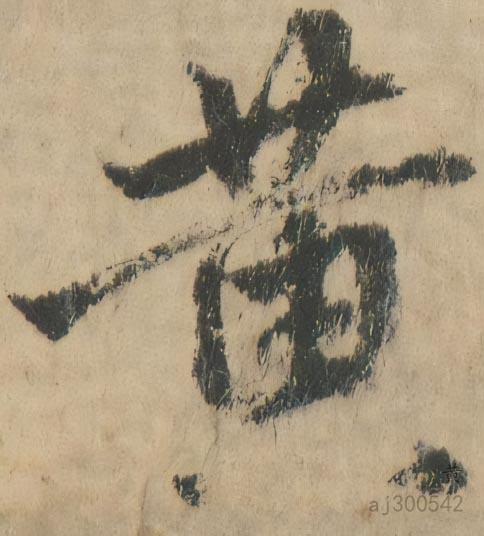 黄
aj300542